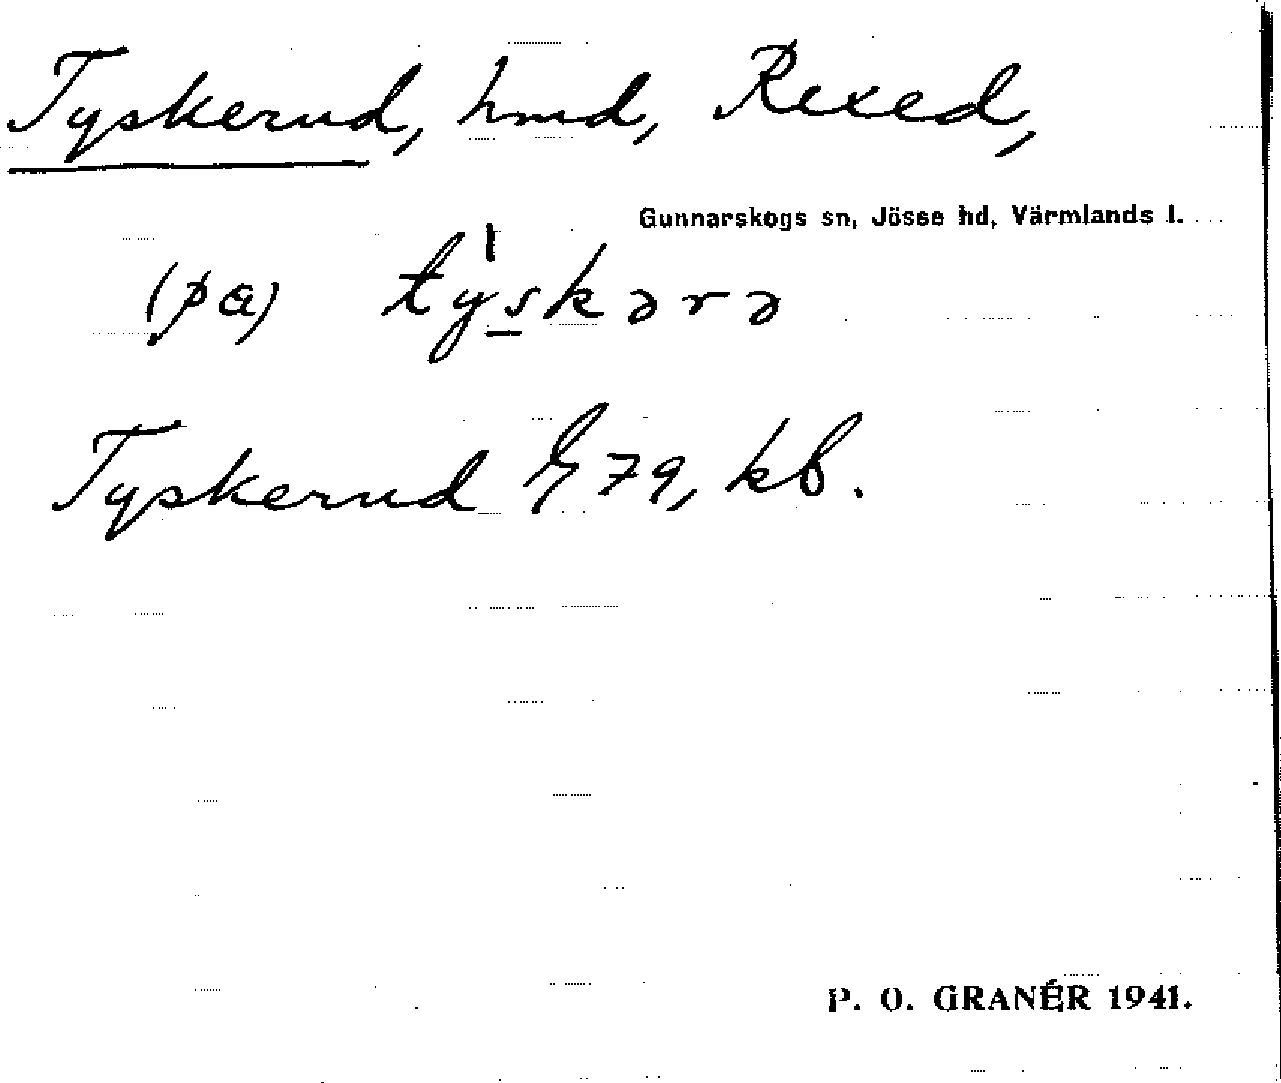 Tyskerud, hmd, Rexed,
Gunnarskogs sn, Jösse hd, Värmlands l.
(pa) ty̍s̲kərə
Tyskerud E 79, kb.
P. O. GRANÉR 1941.